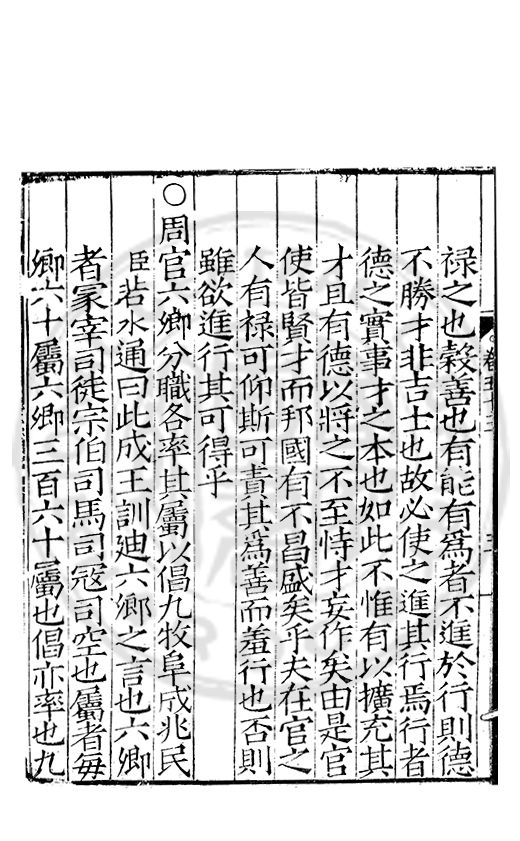 禄之也穀善也有能有爲者不進於行則德
不勝才非吉士也故必使之進其行焉行者
德之實事才之本也如此不惟有以擴充其
才且有德以將之不至恃才妄作矣由是官
使皆賢才而邦國有不昌盛矣乎夫在官之
人有禄可仰斯可責其爲善而羞行也否則
雖欲進行其可得乎
○周官六卿分職各率其屬以倡九牧阜成兆民
臣若水通曰此成王訓迪六卿之言也六卿
者冢宰司徒宗伯司馬司寇司空也屬者每
卿六十屬六卿三百六十屬也倡亦率也九